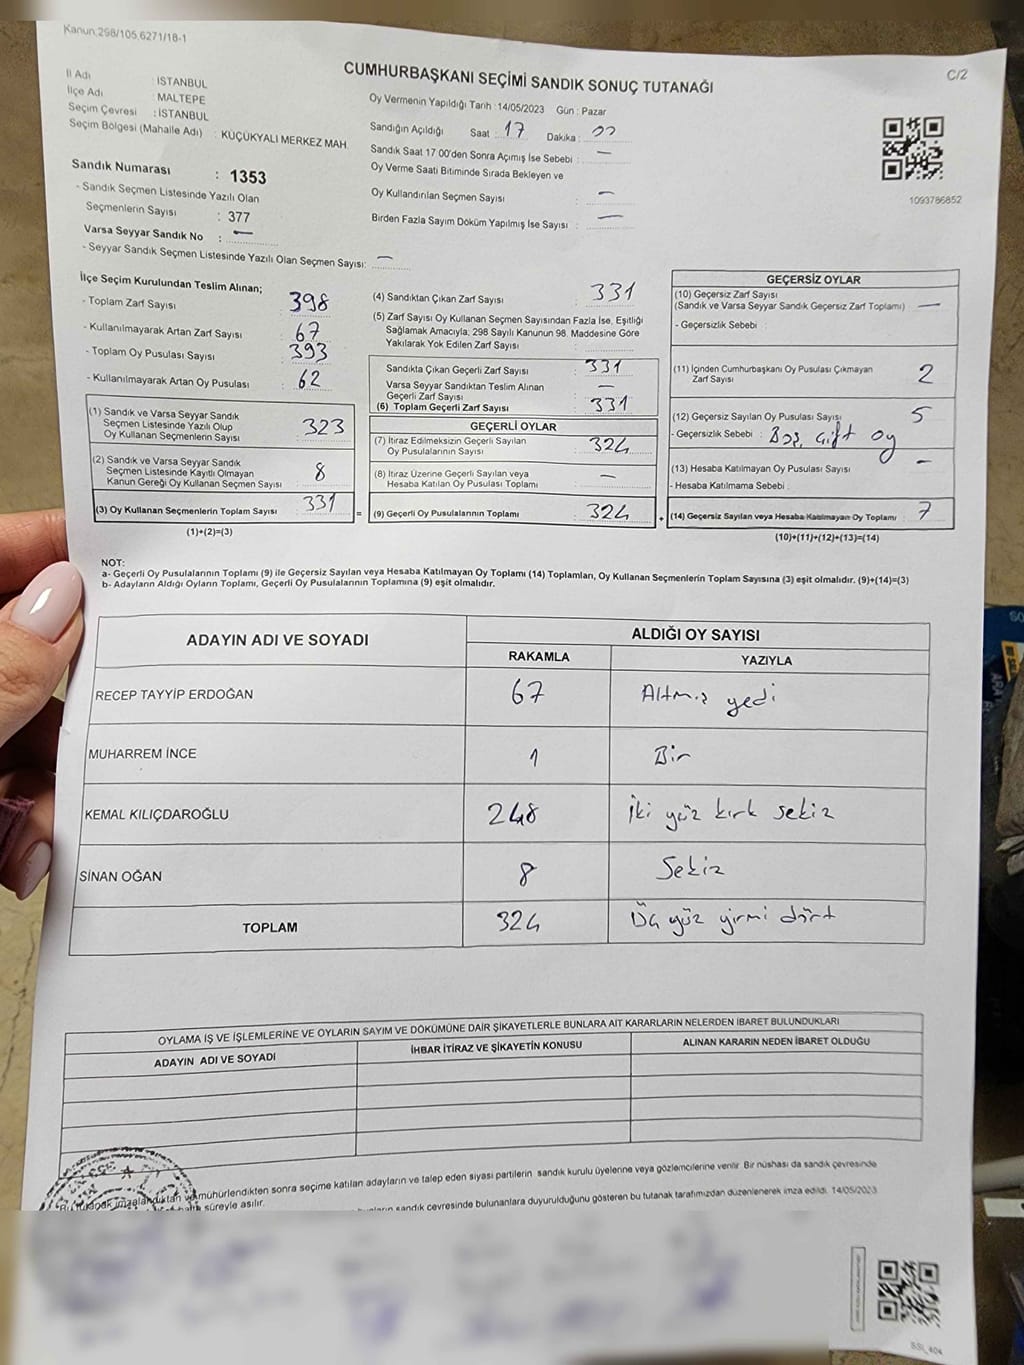 Kanun:298/105,6271/18-1
C/2
CUMHURBAŞKANI SEÇİMİ SANDIK SONUÇ TUTANAĞI
İl Adı : İSTANBUL
İlçe Adı : MALTEPE
Seçim Çevresi : İSTANBUL
Seçim Bölgesi (Mahalle Adı) : KÜÇÜKYALI MERKEZ MAH.
Sandık Numarası : 1353
- Sandık Seçmen Listesinde Yazılı Olan
Seçmenlerin Sayısı : 377
Varsa Seyyar Sandık No : —
- Seyyar Sandık Seçmen Listesinde Yazılı Olan Seçmen Sayısı: —
Oy Vermenin Yapıldığı Tarih :14/05/2023 Gün : Pazar
Sandığın Açıldığı Saat : 17 Dakika : 00
Sandık Saat 17 00'den Sonra Açımış İse Sebebi : —
Oy Verme Saati Bitiminde Sırada Bekleyen ve
Oy Kullandırılan Seçmen Sayısı : —
Birden Fazla Sayım Döküm Yapılmış İse Sayısı : —
1093786852
İlçe Seçim Kurulundan Teslim Alınan;
- Toplam Zarf Sayısı : 398
- Kullanılmayarak Artan Zarf Sayısı : 67
- Toplam Oy Pusulası Sayısı : 393
- Kullanılmayarak Artan Oy Pusulası : 62
(1) Sandık ve Varsa Seyyar Sandık
Seçmen Listesinde Yazılı Olup
Oy Kullanan Seçmenlerin Sayısı : 323
(2) Sandık ve Varsa Seyyar Sandık
Seçmen Listesinde Kayıtlı Olmayan
Kanun Gereği Oy Kullanan Seçmen Sayısı : 8
(3) Oy Kullanan Seçmenlerin Toplam Sayısı : 331
(1)+(2)=(3)
=
(4) Sandıktan Çıkan Zarf Sayısı : 331
(5) Zarf Sayısı Oy Kullanan Seçmen Sayısından Fazla İse, Eşitliği
Sağlamak Amacıyla, 298 Sayılı Kanunun 98. Maddesine Göre
Yakılarak Yok Edilen Zarf Sayısı :
Sandıkta Çıkan Geçerli Zarf Sayısı : 331
Varsa Seyyar Sandıktan Teslim Alınan
Geçerli Zarf Sayısı : —
(6) Toplam Geçerli Zarf Sayısı : 331
GEÇERLİ OYLAR
(7) İtiraz Edilmeksizin Geçerli Sayılan
Oy Pusulalarının Sayısı : 324
(8) İtiraz Üzerine Geçerli Sayılan veya
Hesaba Katılan Oy Pusulası Toplamı : —
(9) Geçerli Oy Pusulalarının Toplamı : 324
+
GEÇERSİZ OYLAR
(10) Geçersiz Zarf Sayısı
(Sandık ve Varsa Seyyar Sandık Geçersiz Zarf Toplamı) : —
- Geçersizlik Sebebi :
(11) İçinden Cumhurbaşkanı Oy Pusulası Çıkmayan
Zarf Sayısı : 2
(12) Geçersiz Sayılan Oy Pusulası Sayısı : 5
- Geçersizlik Sebebi : Boş, çift oy
(13) Hesaba Katılmayan Oy Pusulası Sayısı : —
- Hesaba Katılmama Sebebi :
(14) Geçersiz Sayılan veya Hesaba Katılmayan Oy Toplamı : 7
(10)+(11)+(12)+(13)=(14)
NOT:
a- Geçerli Oy Pusulalarının Toplamı (9) ile Geçersiz Sayılan veya Hesaba Katılmayan Oy Toplamı (14) Toplamları, Oy Kullanan Seçmenlerin Toplam Sayısına (3) eşit olmalıdır. (9)+(14)=(3)
b- Adayların Aldığı Oyların Toplamı, Geçerli Oy Pusulalarının Toplamına (9) eşit olmalıdır.
ADAYIN ADI VE SOYADI
ALDIĞI OY SAYISI
RAKAMLA YAZIYLA
RECEP TAYYİP ERDOĞAN 67 Altmış yedi
MUHARREM İNCE 1 Bir
KEMAL KILIÇDAROĞLU 248 İki yüz kırk sekiz
SİNAN OĞAN 8 Sekiz
TOPLAM 324 Üç yüz yirmi dört
OYLAMA İŞ VE İŞLEMLERİNE VE OYLARIN SAYIM VE DÖKÜMÜNE DAİR ŞİKAYETLERLE BUNLARA AİT KARARLARIN NELERDEN İBARET BULUNDUKLARI
ADAYIN ADI VE SOYADI İHBAR İTİRAZ VE ŞİKAYETİN KONUSU ALINAN KARARIN NEDEN İBARET OLDUĞU
imzalandıktan ve mühürlendikten sonra seçime katılan adayların ve talep eden siyasi partilerin sandık kurulu üyelerine veya gözlemcilerine verilir. Bir nüshası da sandık çevresinde
süreyle asılır.
sandık çevresinde bulunanlara duyurulduğunu gösteren bu tutanak tarafımızdan düzenlenerek imza edildi. 14/05/2023